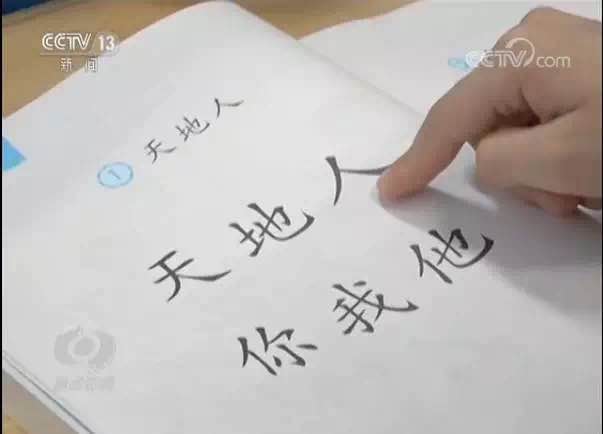 CCTV 13
新闻
CCTV.com
1 天地人
天地人
你我他